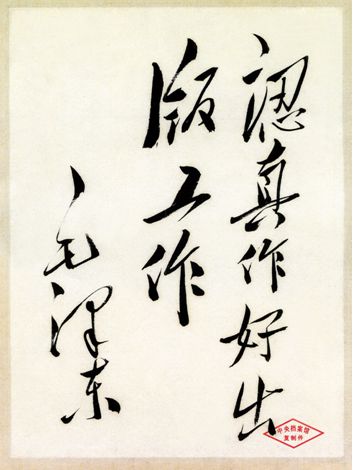 認真作好出
版工作
毛泽东
中央档案馆
复制件